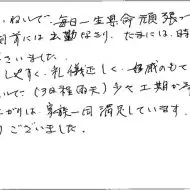 いねいで、毎日一生懸命頑張
前には出勤され、たまには、時
さいました。
しやすく、礼儀正しく、好感のもて
いて、(3日程雨天) 少々工期が
がりは、家族一同満足しています。
うございました。